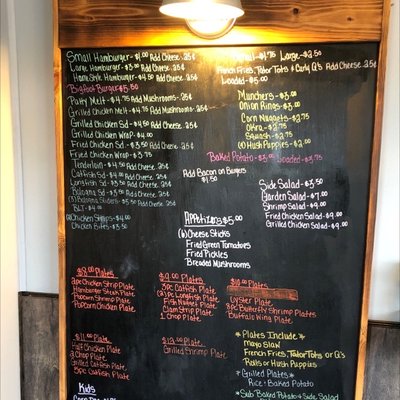 Small Hamburger-$4.00 Add Cheese .25¢
Large Hamburger-$3.50 Add Cheese .25¢
HomeStyle Hamburger-$4.50 Add Cheese .25¢
Bigfoot Burger $5.50
Patty Melt-$4.75 Add Mushrooms-.25¢
Grilled Chicken Melt-$4.75 Add Mushrooms-.25¢
Grilled Chicken Sd-$4.50 Add Cheese .25¢
Grilled Chicken Wrap-$4.00
Fried Chicken Sd-$3.50 Add Cheese .25¢
Fried Chicken Wrap-$3.75
Tenderloin-$4.50 Add Cheese .25¢
Catfish Sd-$4.00 Add Cheese .25¢
Add Cheese .25¢
BLT-$4.00
Chicken Strips-$4.00
Chicken Bites-$3.50
Large-$2.50
French Fries, Tator Tots + Curly Q's Add Cheese .25¢
Loaded-$5.00
Munchers-$3.00
Onion Rings-$3.00
Corn Nuggets-$2.75
Okra-$2.75
Squash-$2.75
Hush Puppies-$2.00
Baked Potato-$3.00 Loaded-$3.75
Add Bacon on Burgers
$1.50
Side Salad-$3.50
Garden Salad-$7.00
Shrimp Salad-$9.00
Fried Chicken Salad-$9.00
Grilled Chicken Salad-$9.00
Appetizers $5.00
(6) Cheese Sticks
Fried Green Tomatoes
Fried Pickles
Breaded Mushrooms
$8.00 Plates
2pc Chicken Strip Plate
Hamburger Steak Plate
Popcorn Shrimp Plate
Popcorn Chicken Plate
$9.00 Plates
3pc Catfish Plate
Fish Nuggets Plate
Clam Strip Plate
1 Chop Plate
$10.00 Plates
Butterfly Shrimp Plates
Buffalo Wing Plate
$11.00 Plates
Chicken Plate
2 Chop Plate
Grilled Catfish Plate
5pc Catfish Plate
Grilled Shrimp Plate
*Plates Include*
Mayo Slaw
French Fries, Tator Tots or Q's
Rolls or Hush Puppies
*Grilled Plates*
Rice + Baked Potato
*Sub Baked Potato + Side Salad
Kids